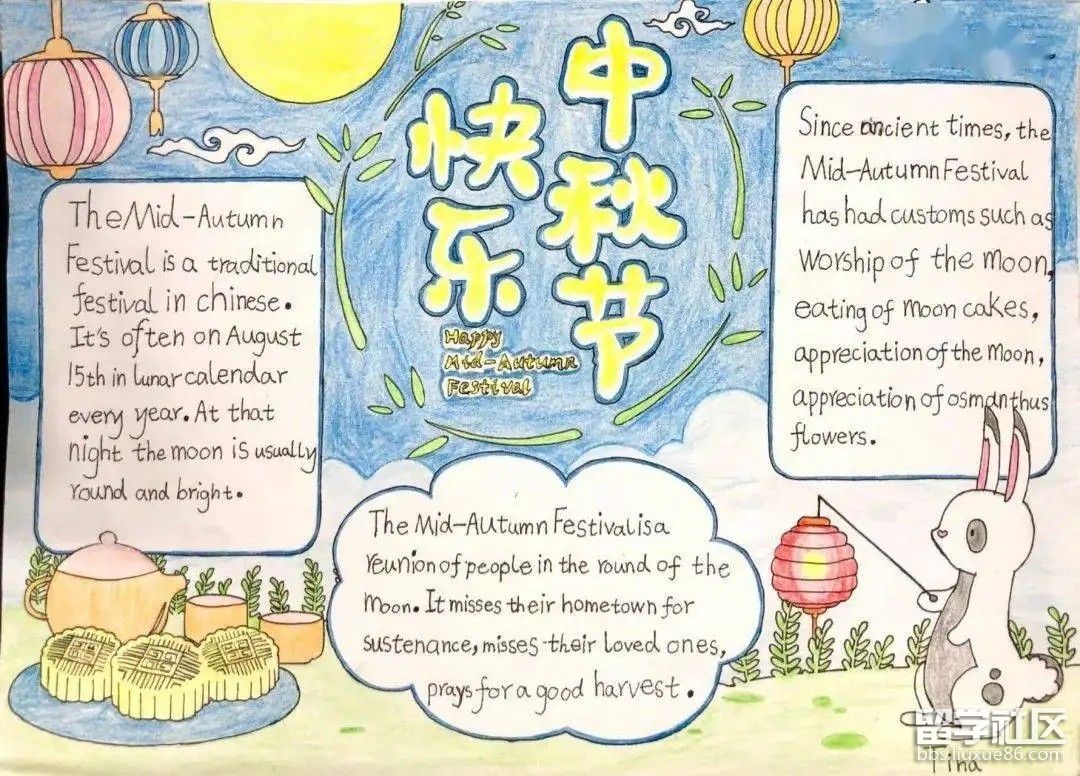 中秋节
快乐
Happy
Mid-Autumn
Festival
The Mid-Autumn
Festival is a traditional
festival in chinese.
It's often on August
15th in lunar calendar
every year. At that
night the moon is usually
round and bright.
Since ancient times, the
Mid-Autumn Festival
has had customs such as
worship of the moon,
eating of moon cakes,
appreciation of the moon,
appreciation of osmanthus
flowers.
The Mid-Autumn Festival is a
reunion of people in the round of the
moon. It misses their hometown for
sustenance, misses their loved ones,
prays for a good harvest.
Tina
留学社区
bbs.liuxue86.com